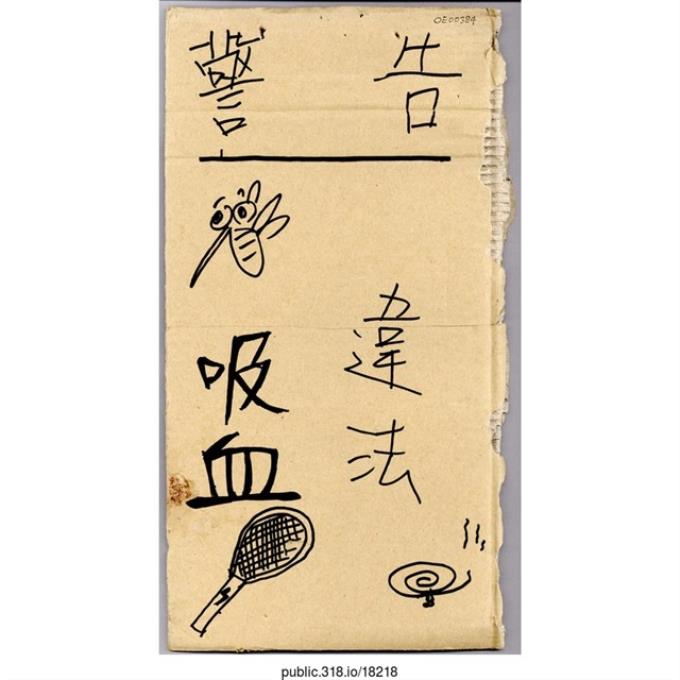 OE00384
警告
吸血
違法
public.318.io/18218